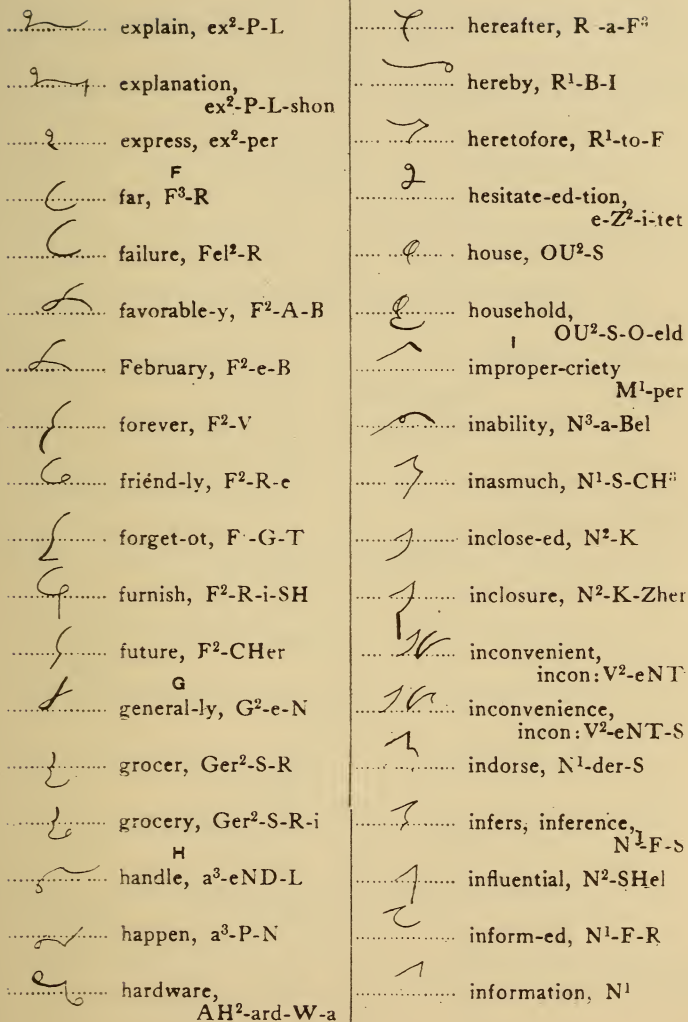 explain, ex²-P-L
explanation,
ex²-P-L-shon
express, ex²-per
F
far, F³-R
failure, Fel²-R
favorable-y, F²-A-B
February, F²-e-B
forever, F²-V
friénd-ly, F²-R-e
forget-ot, F -G-T
furnish, F²-R-i-SH
future, F²-CHer
G
general-ly, G²-e-N
grocer, Ger²-S-R
grocery, Ger²-S-R-i
H
handle, a³-eND-L
happen, a³-P-N
hardware,
AH²-ard-W-a
hereafter, R -a-F³
hereby, R¹-B-I
heretofore, R¹-to-F
hesitate-ed-tion,
e-Z²-i-tet
house, OU²-S
household,
OU²-S-O-eld
I
improper-criety
M¹-per
inability, N³-a-Bel
inasmuch, N¹-S-CH³
inclose-ed, N²-K
inclosure, N²-K-Zher
inconvenient,
incon:V²-eNT
inconvenience,
incon:V²-eNT-S
indorse, N¹-der-S
infers, inference,
N¹-F-S
influential, N²-SHel
inform-ed, N¹-F-R
information, N¹